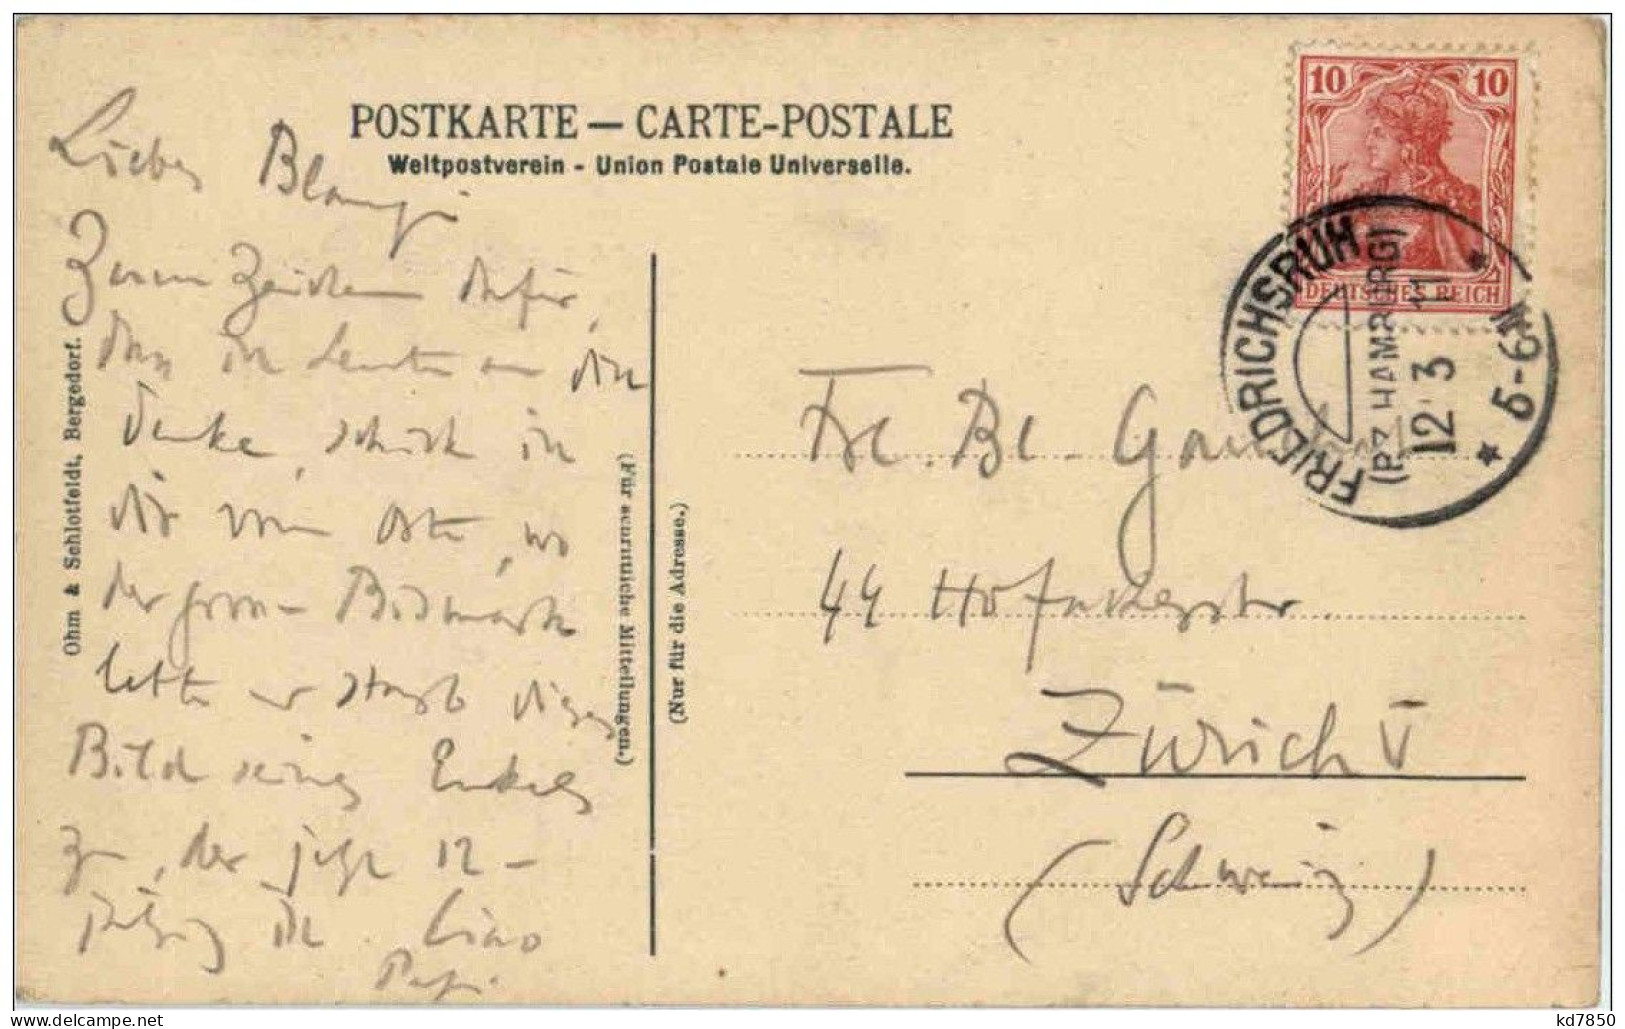 POSTKARTE — CARTE-POSTALE
Weltpostverein - Union Postale Universelle.
10 10
DEUTSCHES REICH
FRIEDRICHSRUH
(BZ. HAMBURG)
12 3 11
* 5-6 N *
Ohm & Schlotfeldt, Bergedorf.
(Für schriftliche Mitteilungen.)
(Nur für die Adresse.)
Liebes
Zum Zeichen dafür,
dass ich heute an dich
denke, schick ich
dir vom Orte, wo
der grosse Bismarck
lebte und starb dieses
Bild seines Enkels
zu, der jetzt 12-
jährig ist. Ciao
Papi
Frl. Bl.
44 Hofackerstr.
Zürich V
(Schweiz)
kd7850
© delcampe.net